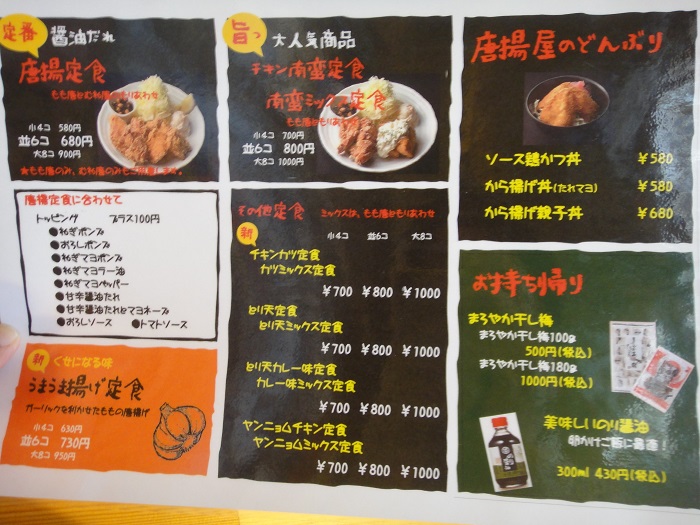 定番 醤油だれ
唐揚定食
もも唐とむね唐のもりあわせ
小4コ 580円
並6コ 680円
大8コ 900円
★もも唐のみ、むね唐のみもご用意します。
唐揚定食に合わせて
トッピング プラス100円
●ねぎポンズ
●おろしポンズ
●ねぎマヨポンズ
●ねぎマヨラー油
●ねぎマヨペッパー
●甘辛醤油たれ
●甘辛醤油たれとマヨネーズ
●おろしソース ●トマトソース
新 くせになる味
うまうま揚げ定食
ガーリックを利かせたももの唐揚げ
小4コ 630円
並6コ 730円
大8コ 950円
旨っ 大人気商品
チキン南蛮定食
南蛮ミックス定食
もも唐ともりあわせ
小4コ 700円
並6コ 800円
大8コ 1000円
その他定食 ミックスは、もも唐ともりあわせ
小4コ 並6コ 大8コ
新
チキンカツ定食
カツミックス定食
￥700 ￥800 ￥1000
とり天定食
とり天ミックス定食
￥700 ￥800 ￥1000
とり天カレー味定食
カレー味ミックス定食
￥700 ￥800 ￥1000
ヤンニョムチキン定食
ヤンニョムミックス定食
￥700 ￥800 ￥1000
唐揚屋のどんぶり
ソース鶏かつ丼 ￥580
から揚げ丼(たれマヨ) ￥580
から揚げ親子丼 ￥680
お持ち帰り
まろやか干し梅
まろやか干し梅100g
500円(税込)
まろやか干し梅180g
1000円(税込)
美味しいのり醤油
卵かけご飯に最適！
300ml 430円(税込)